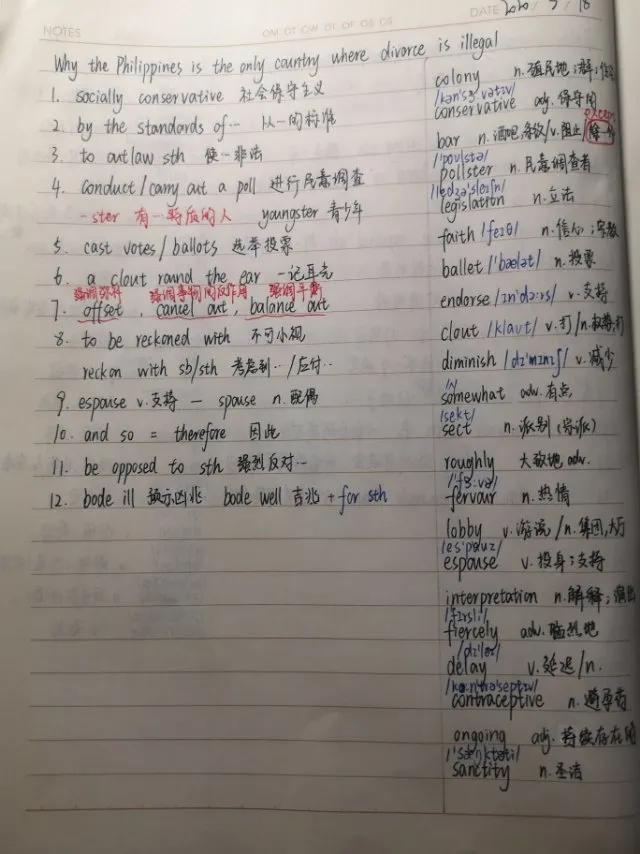 NOTES
DATE 2020 / 5 / 18
Why the Philippines is the only country where divorce is illegal
1. socially conservative 社会保守主义
2. by the standards of… 以…的标准
3. to outlaw sth 使…非法
4. conduct / carry out a poll 进行民意调查
-ster 有…特质的人 youngster 青少年
5. cast votes / ballots 选举投票
6. a clout round the ear 一记耳光
强调弥补 强调事物间的反作用 强调平衡
7. offset , cancel out , balance out
8. to be reckoned with 不可小视
reckon with sb/sth 考虑到… / 应付…
9. espouse v.支持 — spouse n.配偶
10. and so = therefore 因此
11. be opposed to sth 强烈反对…
12. bode ill 预示凶兆 bode well 吉兆 + for sth
colony n.殖民地;群;
/kən'sɜːvətɪv/
conservative adj.保守的
bar n.酒吧;条纹/v.阻止/
/'pəʊlstə/
pollster n.民意调查者
/ledʒə'sleɪʃn/
legislation n.立法
faith /feɪθ/ n.信仰;宗教
ballet /'bælət/ n.投票
endorse /ɪn'dɔːrs/ v.支持
clout /klaʊt/ v.打/n.
diminish /dɪ'mɪnɪʃ/ v.减少
somewhat adv.有点
/sekt/
sect n.派别(宗派)
roughly 大致地 adv.
/'fɜːvə/
fervour n.热情
lobby v.游说/n.集团,大厅
/es'paʊz/
espouse v.投身;支持
interpretation n.解释;演出
/'fɪrsli/
fiercely adv.猛烈地
/dɪ'leɪ/
delay v.延迟/n.
/kɑːntrə'septɪv/
contraceptive n.避孕药
ongoing adj.持续存在的
/'sæŋktəti/
sanctity n.圣洁